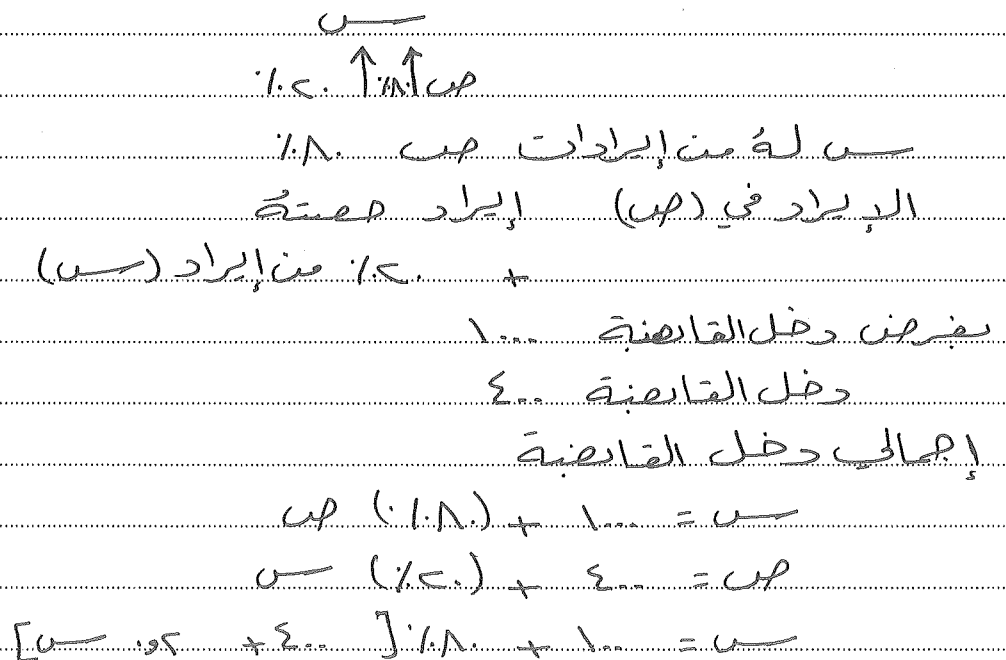 س
ص ↑٨٠٪ ↑ ٢٠٪
س له من إيرادات ص ٨٠٪
الإيراد في (ص) إيراد حصته
+ ٢٠٪ من إيراد (س)
بفرض دخل القابضة ١٠٠٠
دخل القابضة ٤٠٠
إجمالي دخل القابضة
س = ١٠٠٠ + (٨٠٪) ص
ص = ٤٠٠ + (٢٠٪) س
س = ١٠٠٠ + ٨٠٪ [٤٠٠ + ٠,٢ س]